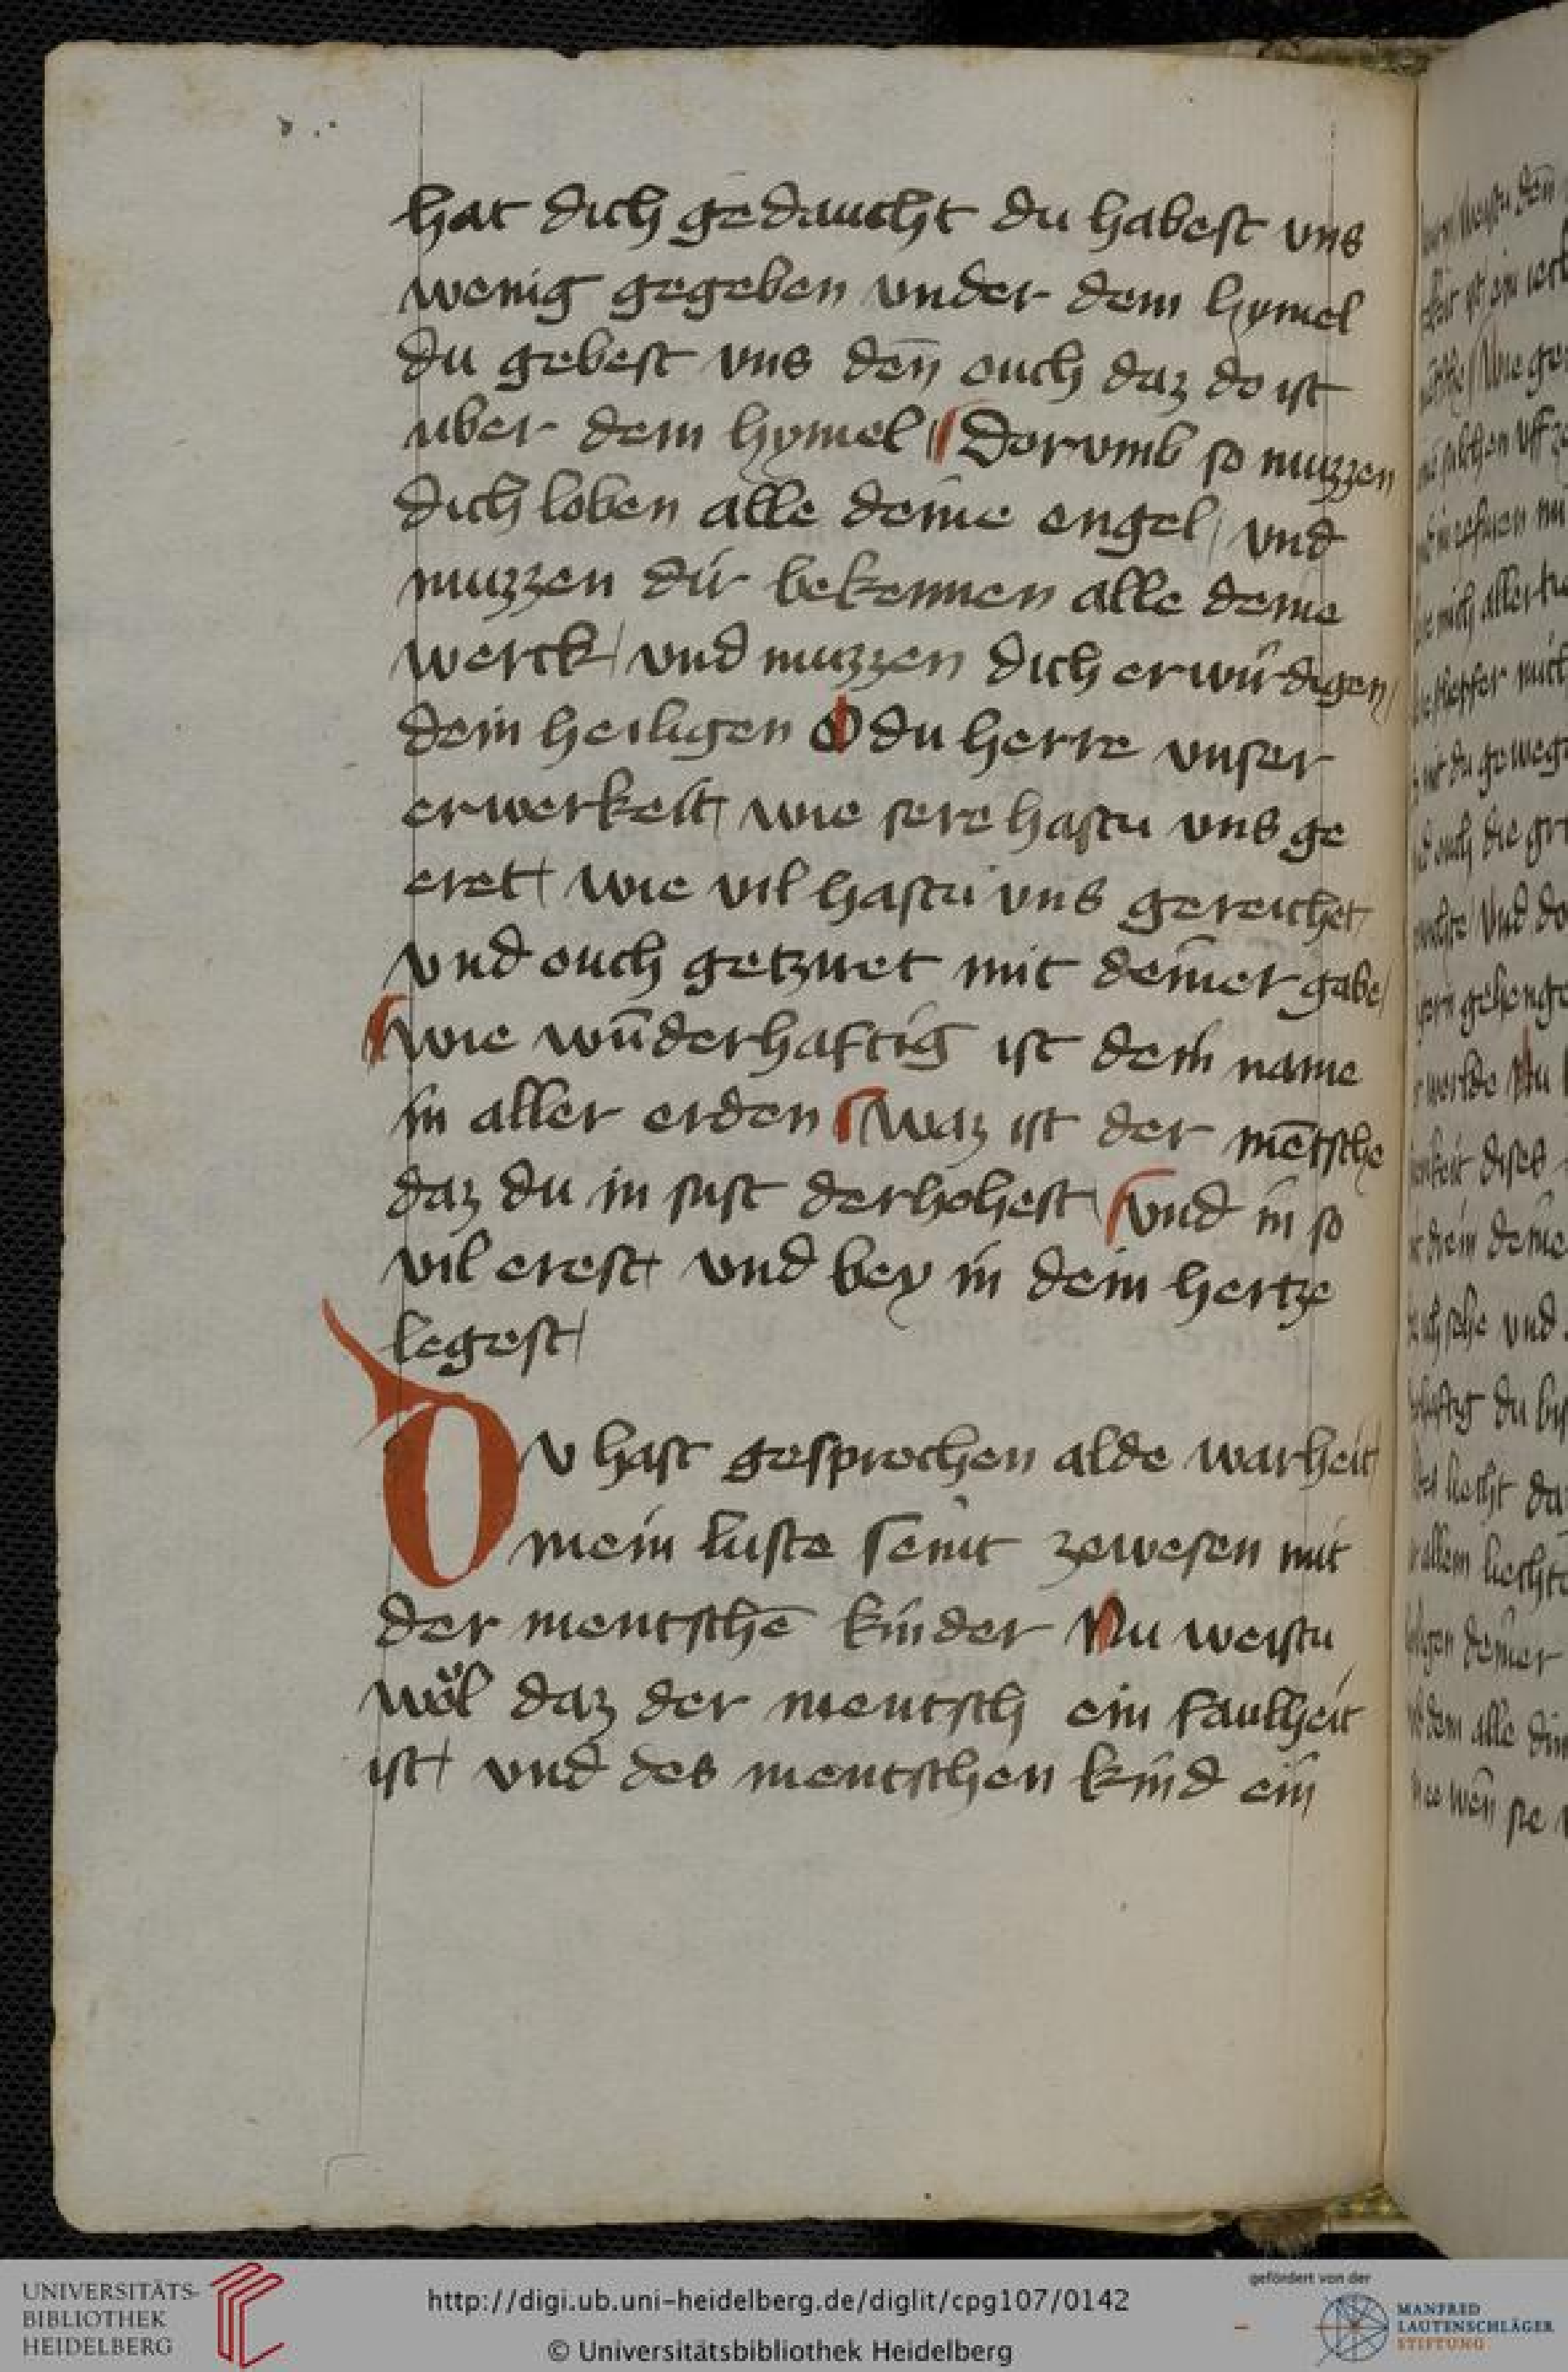 hat dich gedaucht du habest vns
wenig gegeben vnder dem hymel
du gebest vns den̄ ouch daz do ist
uber dem hymel / Dorvmb so muzzen
dich loben alle deine engel / vnd
muzzen dir bekennen alle deine
werck / vnd muzzen dich erwirdigen /
dein heiligen O du herre vnser
erwerkeit / wie sere hastu vns ge
eret / wie vil hastu vns gereichet /
vnd ouch getzuet mit deiner gabe /
wie wūderhaftig ist dein name
in aller erden / waz ist der mētsche
daz du in sust derhohest / vnd in so
vil erest / vnd bey in dein hertze
legest /
DV hast gesprochen alde warheit /
mein luste seint zewesen mit
der mentschē kinder Nu weistu
wol daz der mentsch ein faulheit
ist / vnd des mentschen kind ein
UNIVERSITÄTS-
BIBLIOTHEK
HEIDELBERG
http://digi.ub.uni-heidelberg.de/diglit/cpg107/0142
© Universitätsbibliothek Heidelberg
gefördert von der
MANFRED
LAUTENSCHLÄGER
STIFTUNG